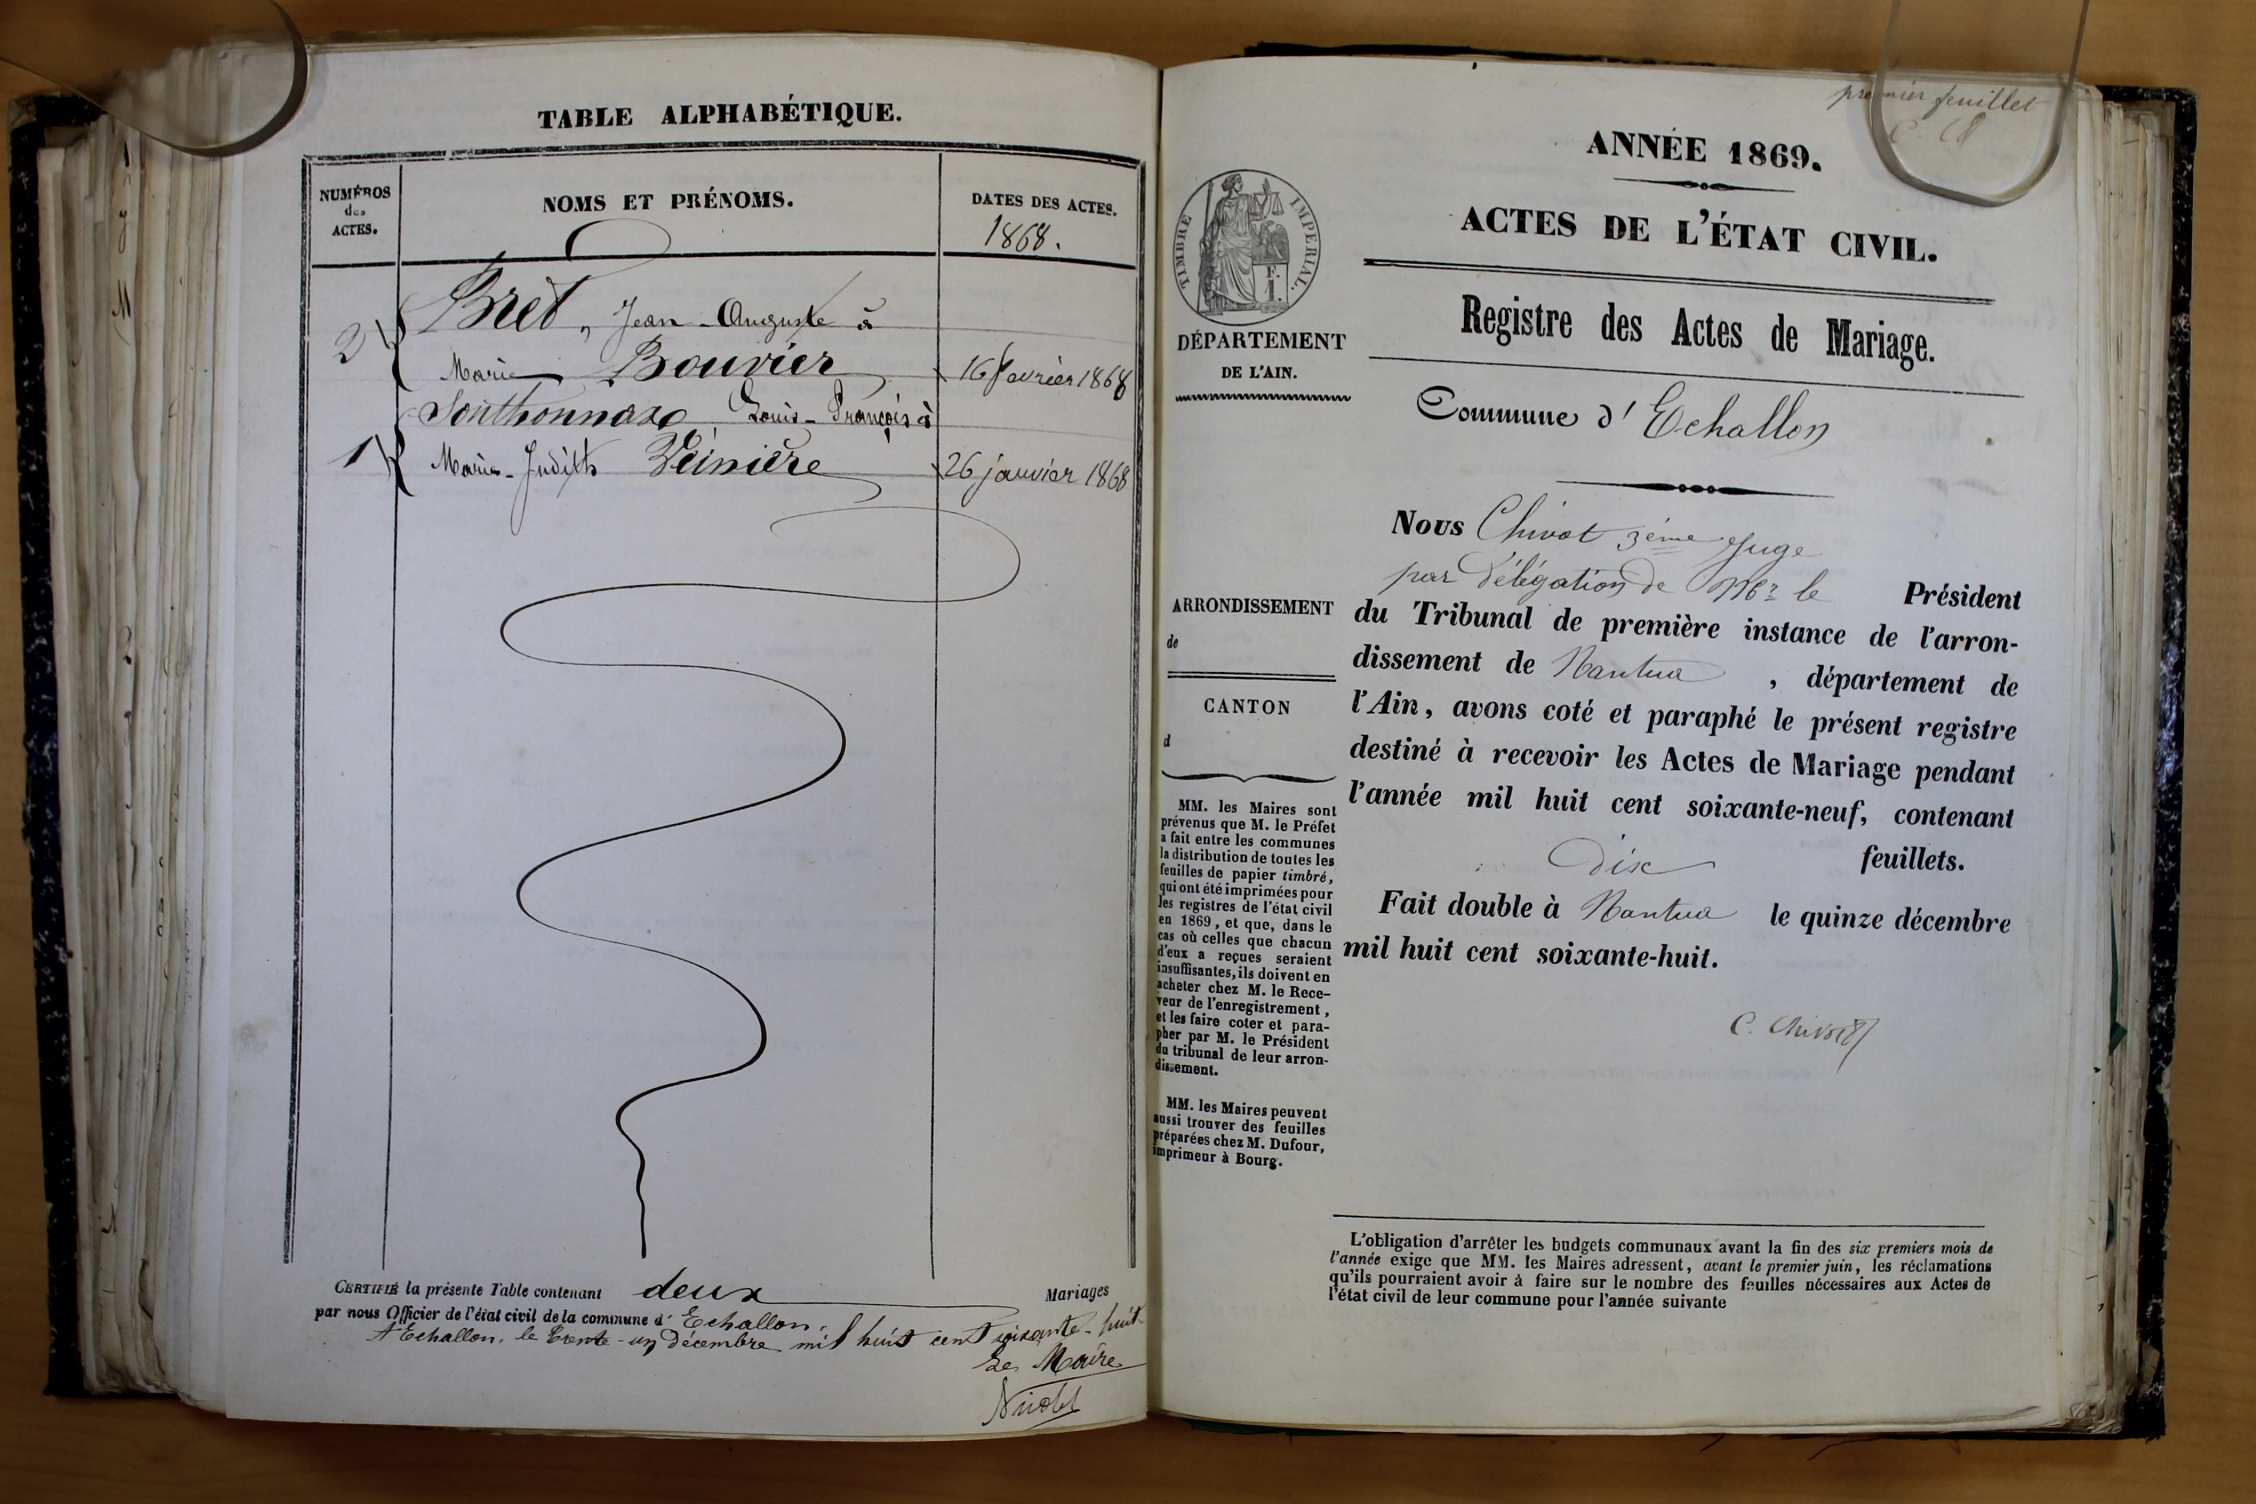 TABLE ALPHABÉTIQUE.
NUMÉROS
des
ACTES.
NOMS ET PRÉNOMS.
DATES DES ACTES.
1868.
2
Bret, Jean-Auguste à
Marie Bouvier
16 février 1868
1
Sonthonnax Louis-François à
Marie-Judith
26 janvier 1868
CERTIFIÉ la présente Table contenant deux Mariages
par nous Officier de l'état civil de la commune d' Echallon,
A Echallon, le trente-un décembre mil huit cent soixante-huit
Le Maire
premier feuillet
ANNÉE 1869.
ACTES DE L'ÉTAT CIVIL.
Registre des Actes de Mariage.
Commune d' Echallon
TIMBRE IMPÉRIAL.
DÉPARTEMENT
DE L'AIN.
ARRONDISSEMENT
de
CANTON
d
MM. les Maires sont
prévenus que M. le Préfet
a fait entre les communes
la distribution de toutes les
feuilles de papier timbré,
qui ont été imprimées pour
les registres de l'état civil
en 1869, et que, dans le
cas où celles que chacun
d'eux a reçues seraient
insuffisantes, ils doivent en
acheter chez M. le Rece-
veur de l'enregistrement,
et les faire coter et para-
pher par M. le Président
du tribunal de leur arron-
dissement.
MM. les Maires peuvent
aussi trouver des feuilles
préparées chez M. Dufour,
imprimeur à Bourg.
Nous Chivot 3ème Juge
par délégation de Mr le Président
du Tribunal de première instance de l'arron-
dissement de Nantua, département de
l'Ain, avons coté et paraphé le présent registre
destiné à recevoir les Actes de Mariage pendant
l'année mil huit cent soixante-neuf, contenant
dix feuillets.
Fait double à Nantua le quinze décembre
mil huit cent soixante-huit.
C. Chivot
L'obligation d'arrêter les budgets communaux avant la fin des six premiers mois de
l'année exige que MM. les Maires adressent, avant le premier juin, les réclamations
qu'ils pourraient avoir à faire sur le nombre des feuilles nécessaires aux Actes de
l'état civil de leur commune pour l'année suivante